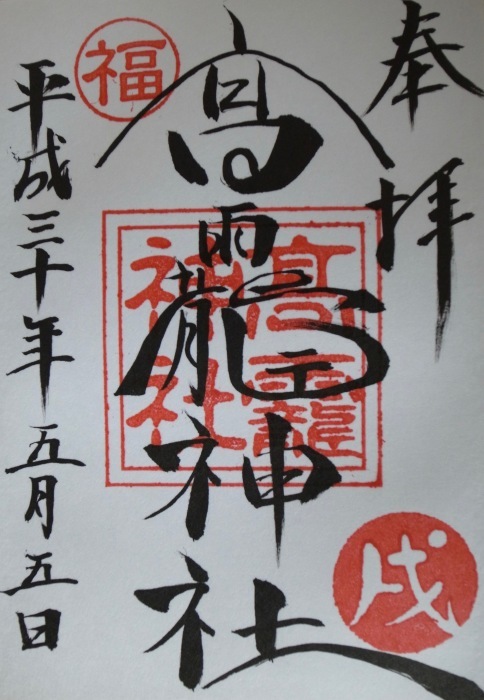 奉拝
福
高龗神社
高龗神社
戌
平成三十年五月五日